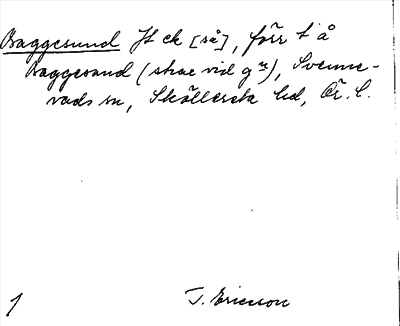 Baggesund Jf ck [så], förr t å
Baggesund (strae vid gns), Svenne-
vads sn, Sköllersta hd, Ör. l.
1 T. Ericsson